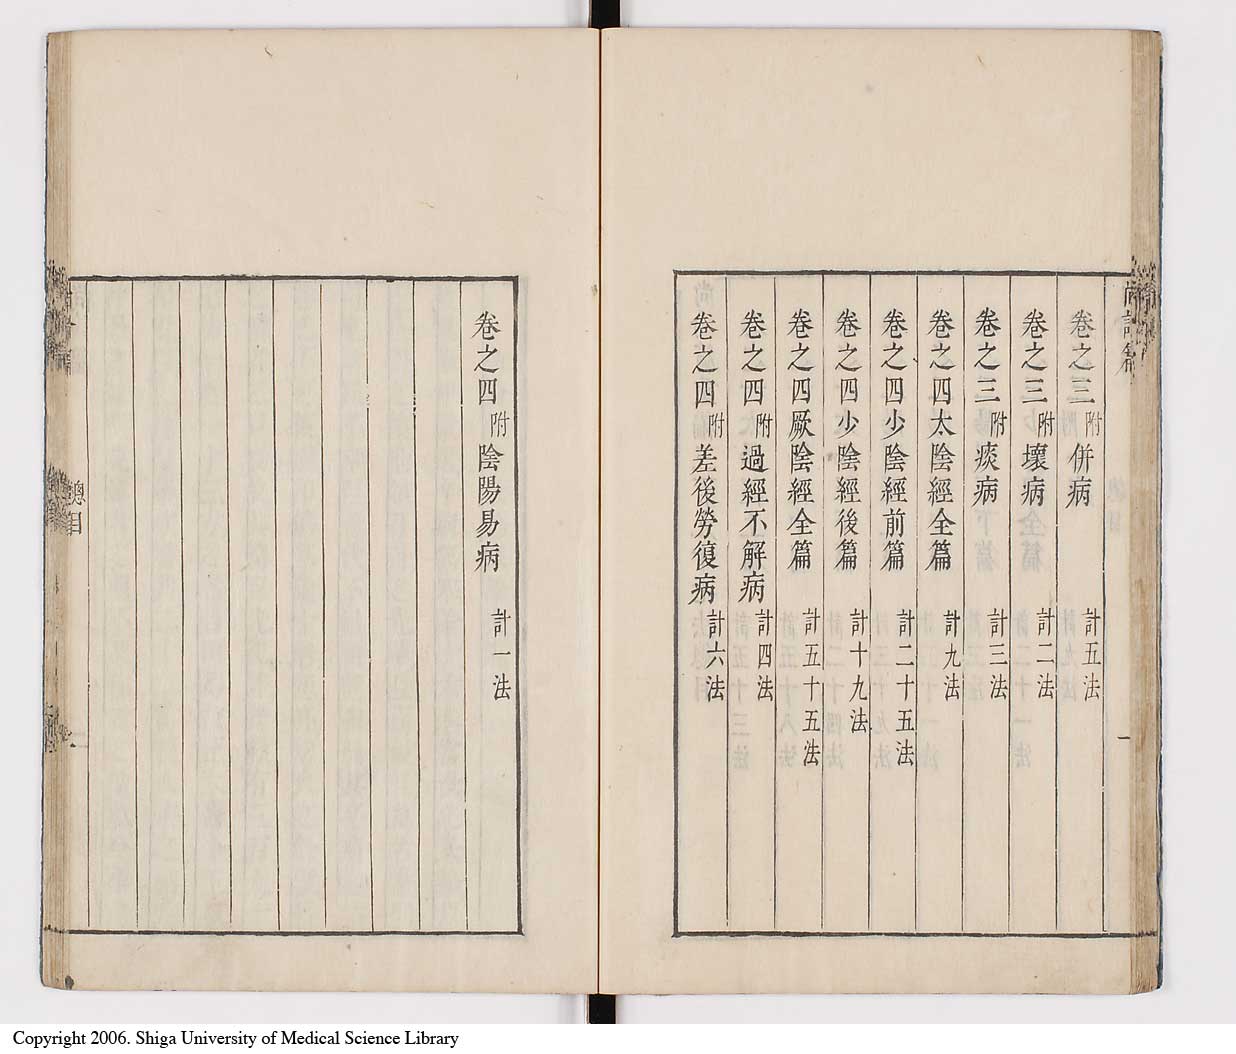 尚論篇
一
卷之三附併病 計五法
卷之三附壞病 計二法
卷之三附痰病 計三法
卷之四太陰經全篇 計九法
卷之四少陰經前篇 計二十五法
卷之四少陰經後篇 計十九法
卷之四厥陰經全篇 計五十五法
卷之四附過經不解病 計四法
卷之四附差後勞復病 計六法
卷之四附陰陽易病 計一法
總目
Copyright 2006. Shiga University of Medical Science Library